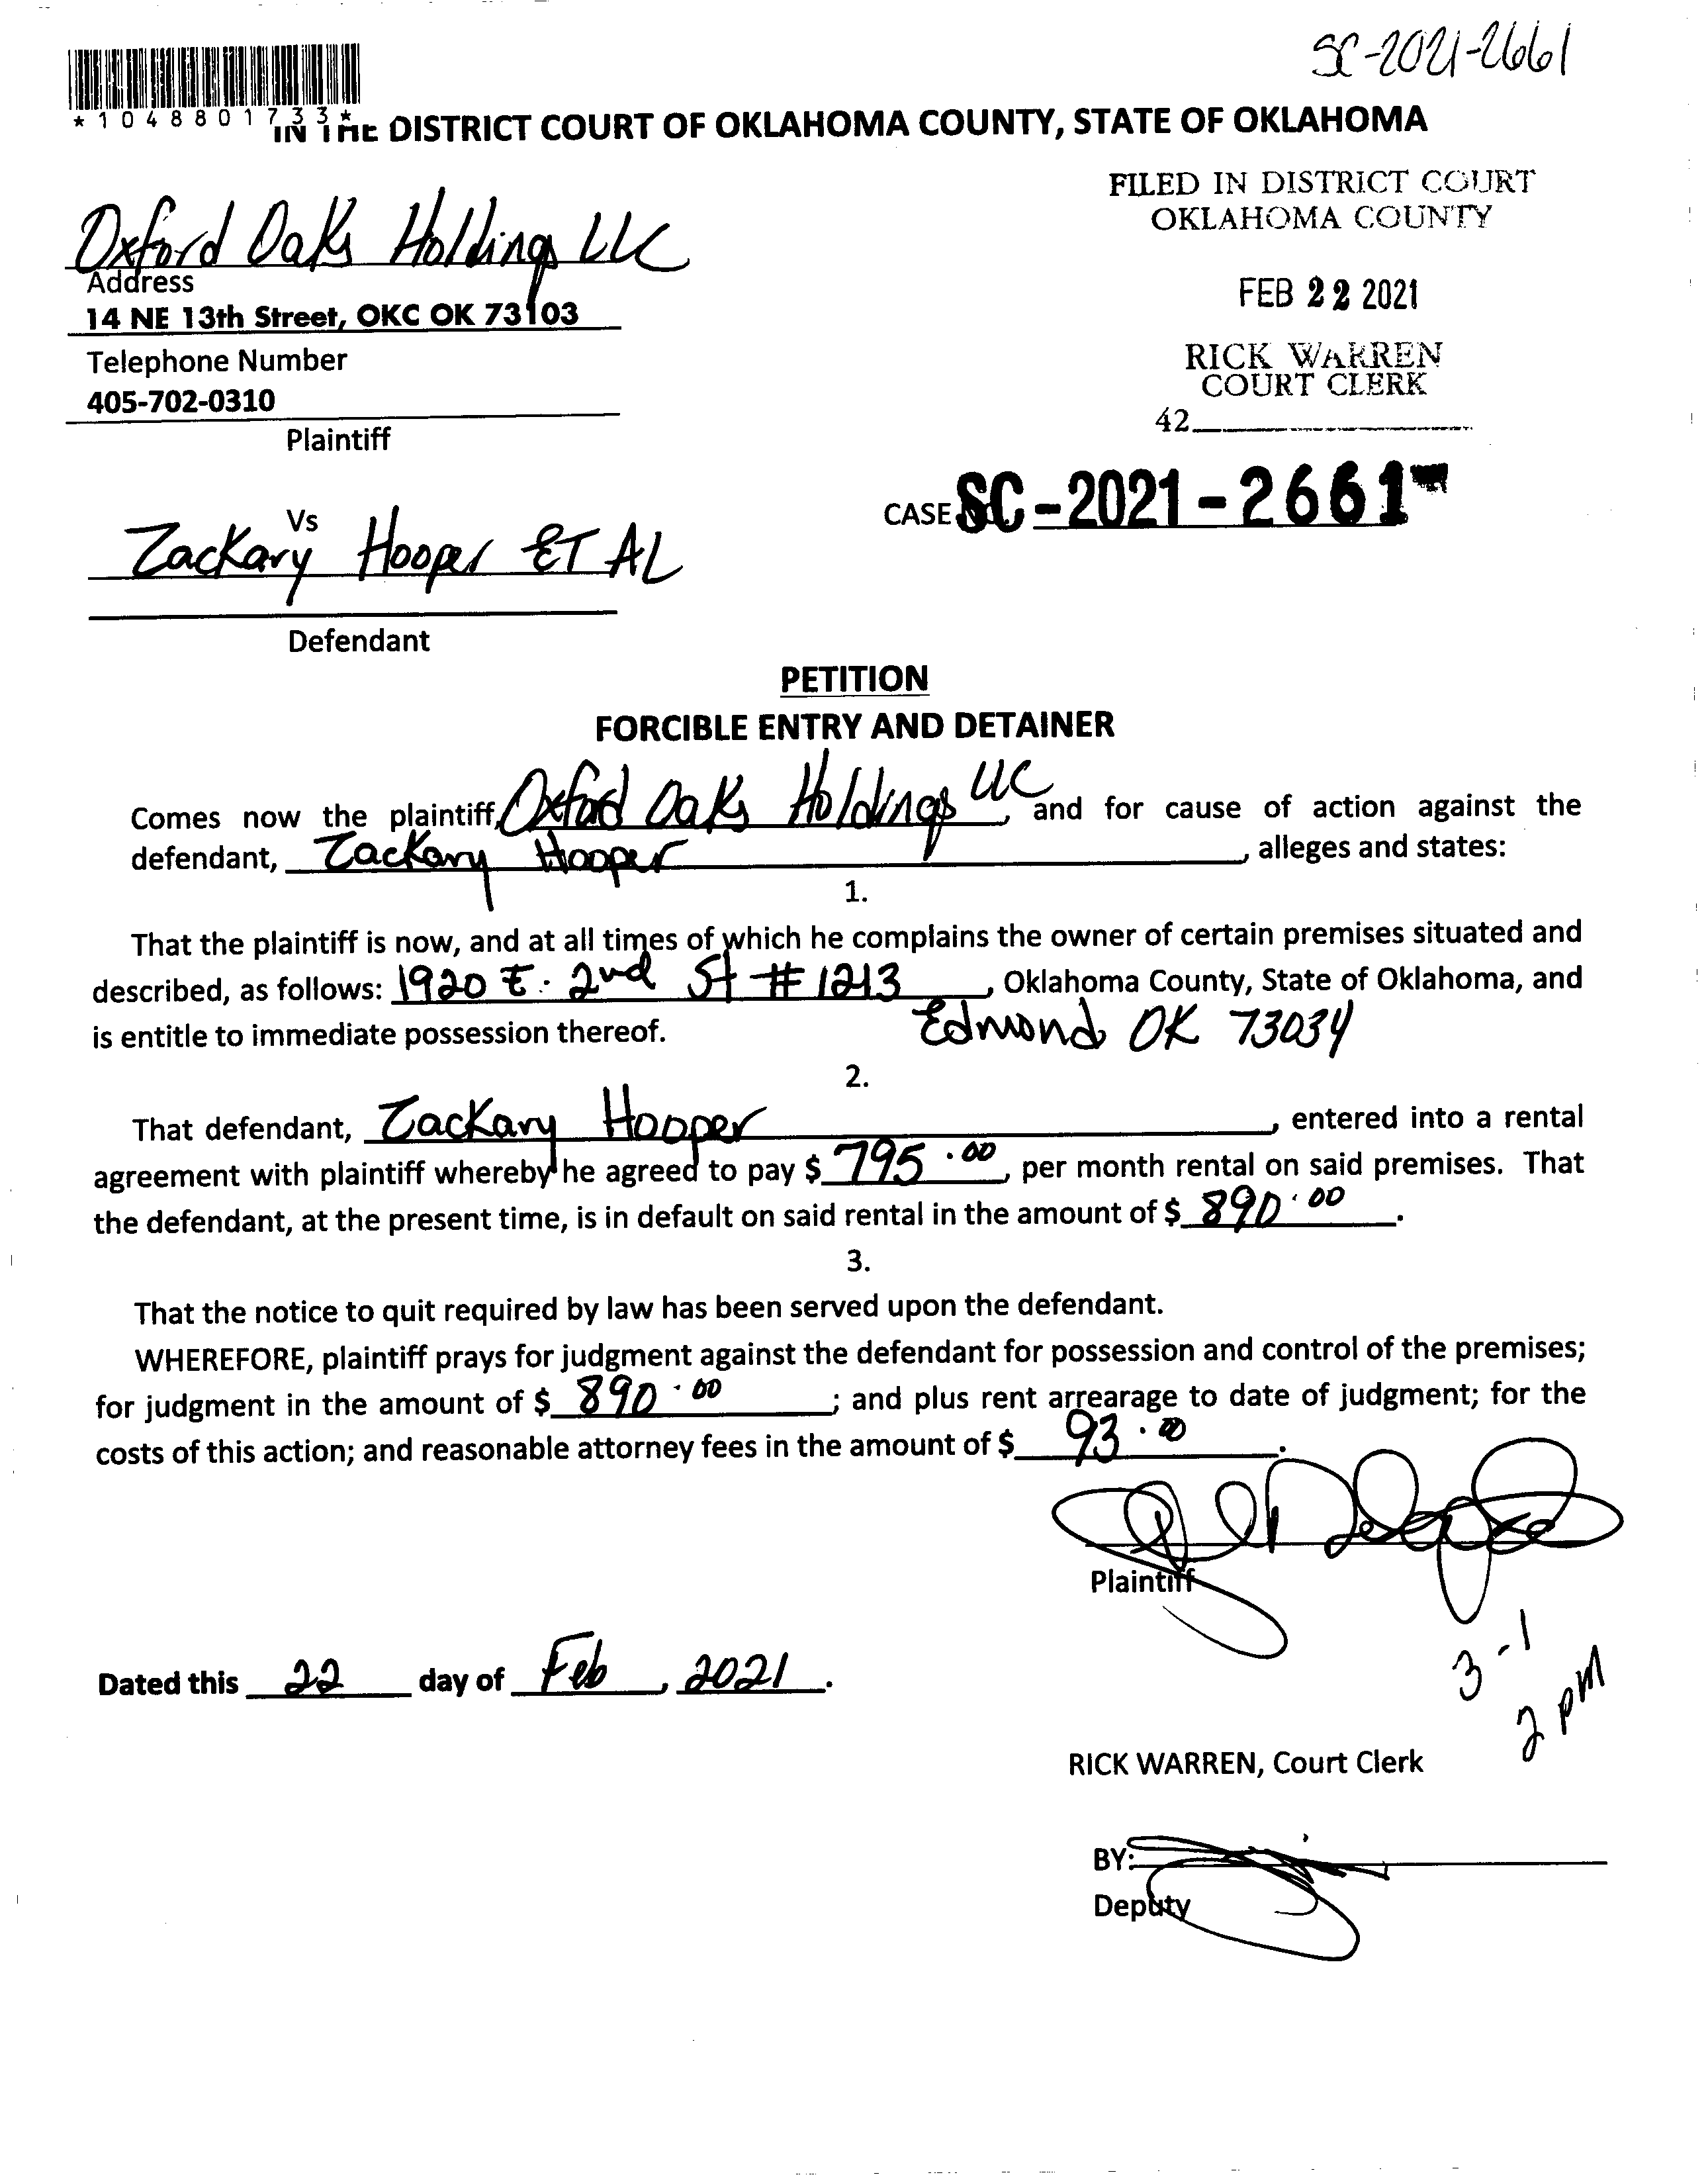 SC-2021-2661
*1048801733*
IN THE DISTRICT COURT OF OKLAHOMA COUNTY, STATE OF OKLAHOMA
FILED IN DISTRICT COURT
OKLAHOMA COUNTY
Oxford Oaks Holdings LLC
Address
14 NE 13th Street, OKC OK 73103
FEB 22 2021
Telephone Number
RICK WARREN
COURT CLERK
405-702-0310
42
Plaintiff
CASE No. SC-2021-2661
Vs
Zackary Hooper ET AL
Defendant
PETITION
FORCIBLE ENTRY AND DETAINER
Comes now the plaintiff, Oxford Oaks Holdings LLC, and for cause of action against the
defendant, Zackary Hooper, alleges and states:
1.
That the plaintiff is now, and at all times of which he complains the owner of certain premises situated and
described, as follows: 1920 E. 2nd St #1213, Oklahoma County, State of Oklahoma, and
is entitle to immediate possession thereof. Edmond OK 73034
2.
That defendant, Zackary Hooper, entered into a rental
agreement with plaintiff whereby he agreed to pay $ 795.00, per month rental on said premises. That
the defendant, at the present time, is in default on said rental in the amount of $ 890.00.
3.
That the notice to quit required by law has been served upon the defendant.
WHEREFORE, plaintiff prays for judgment against the defendant for possession and control of the premises;
for judgment in the amount of $ 890.00; and plus rent arrearage to date of judgment; for the
costs of this action; and reasonable attorney fees in the amount of $ 93.00.
Plaintiff
3-1
2 pm
Dated this 22 day of Feb, 2021.
RICK WARREN, Court Clerk
BY:
Deputy